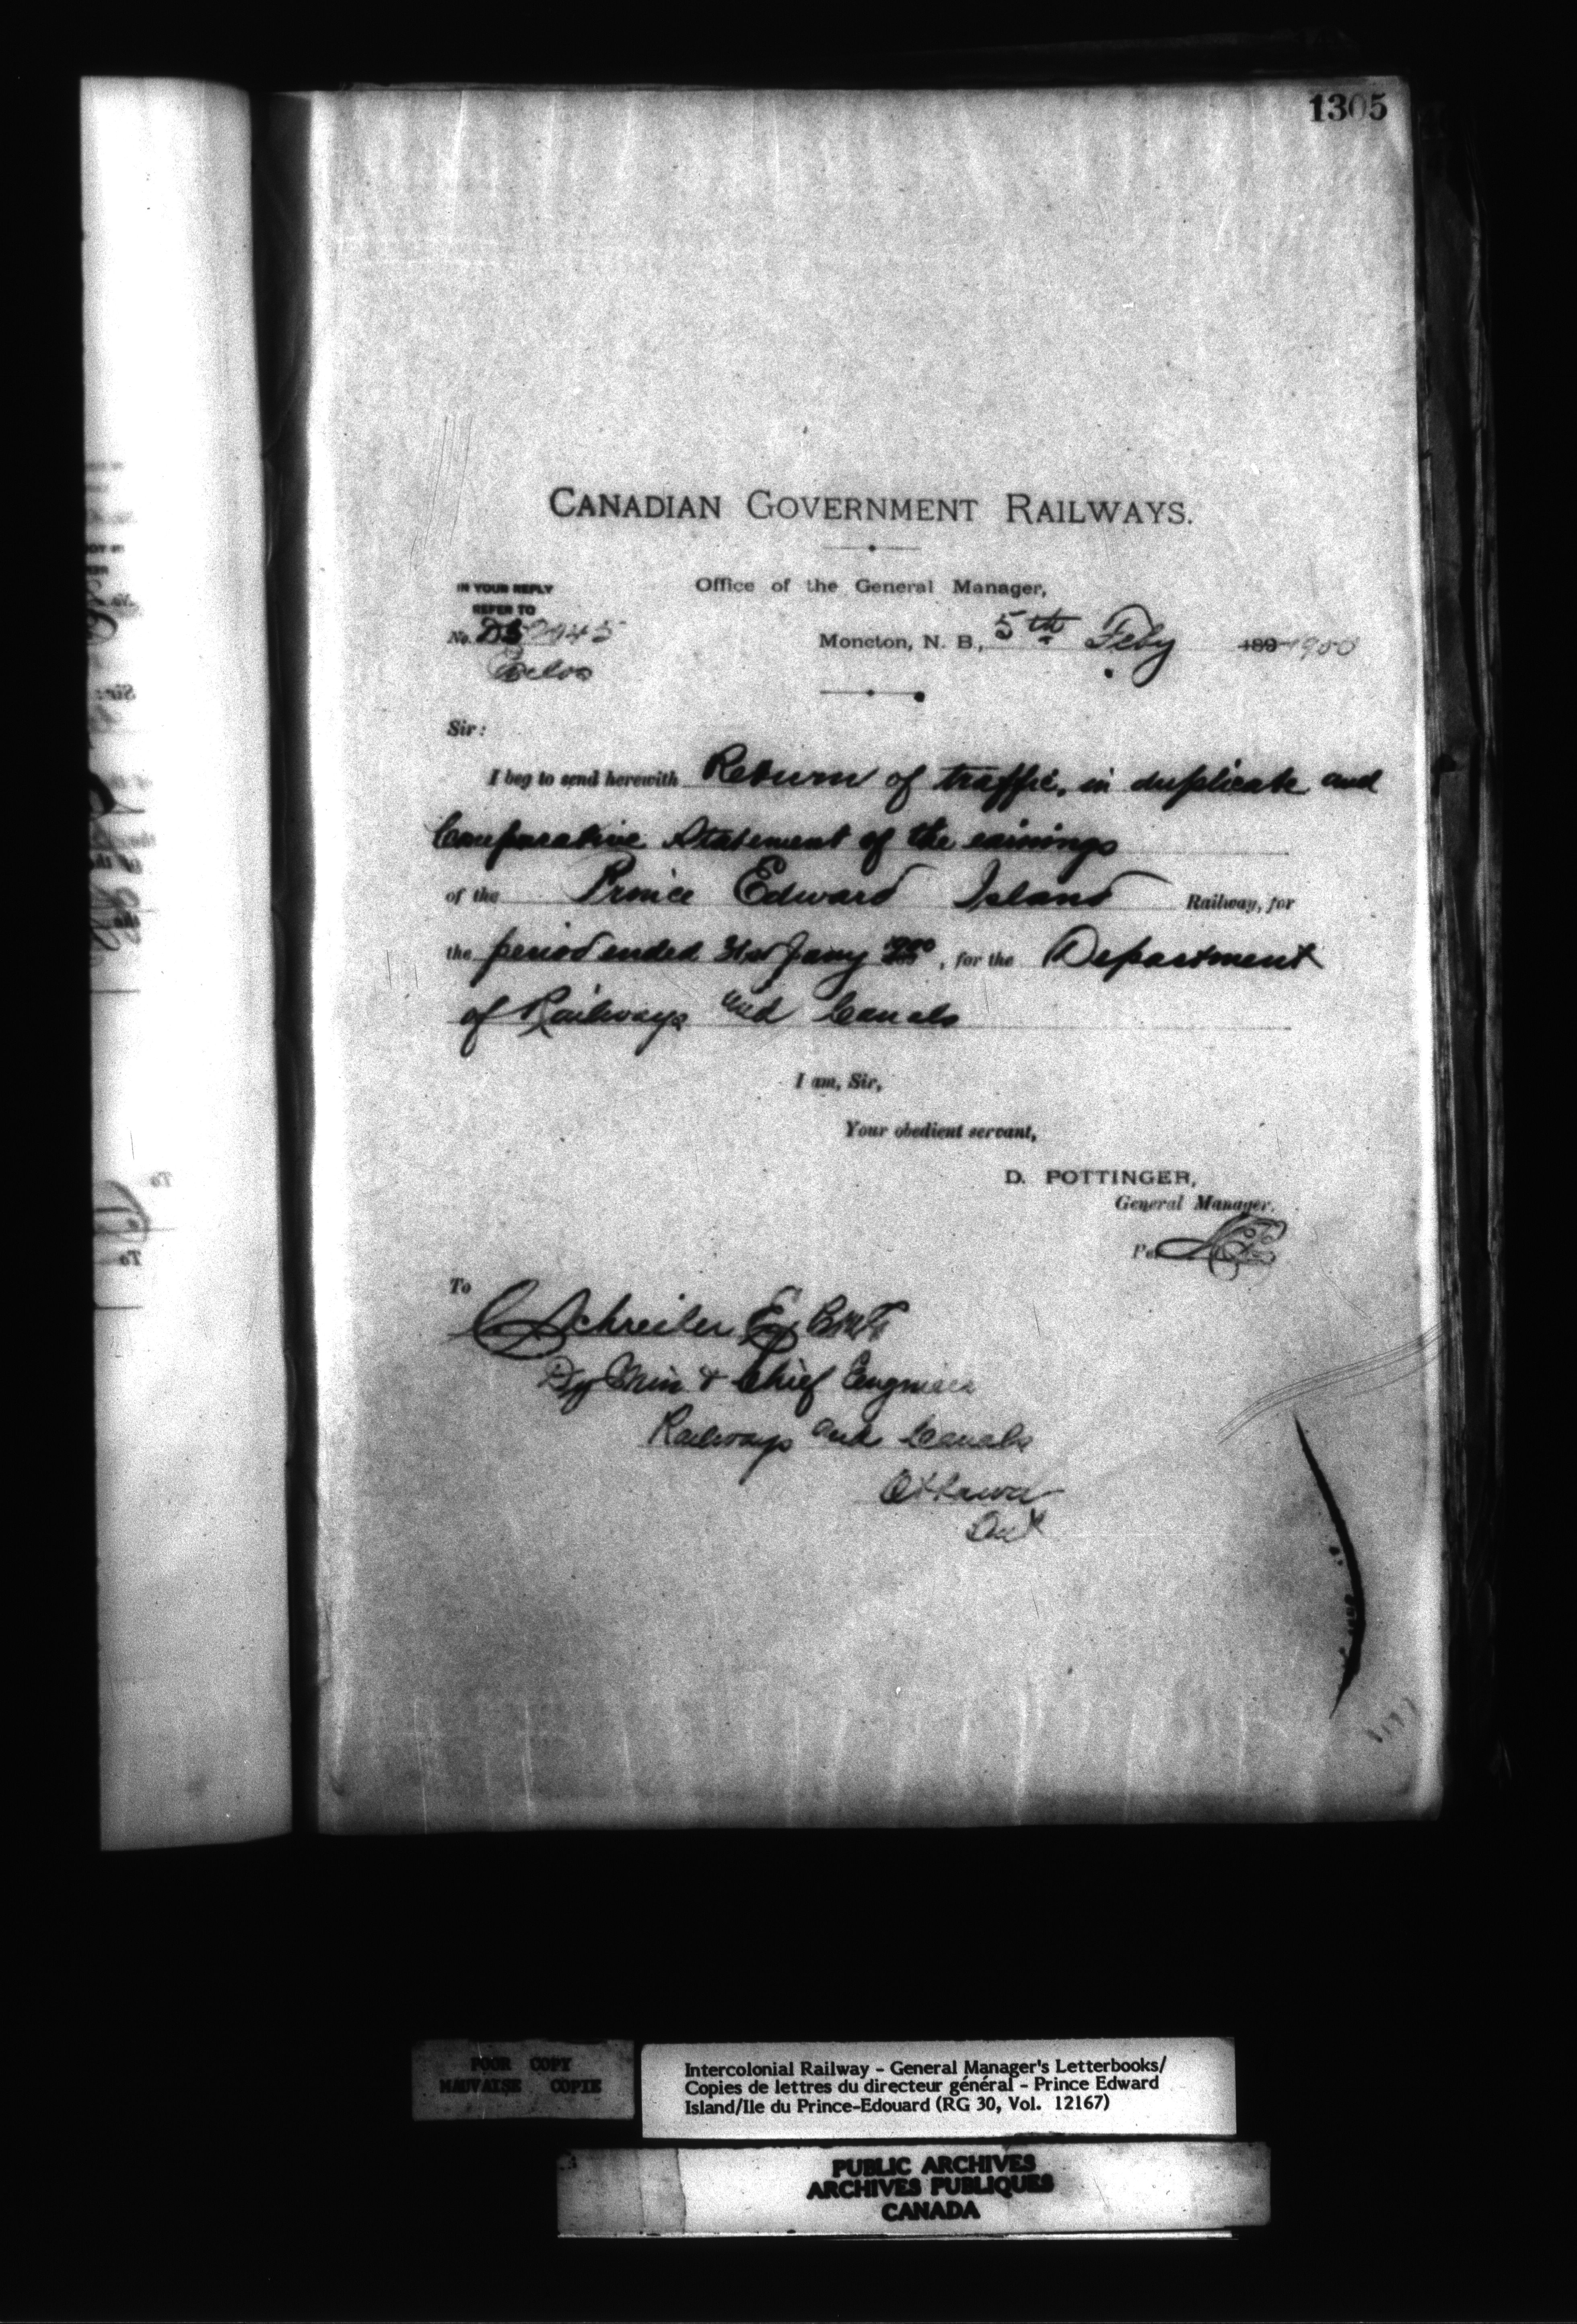 1305
CANADIAN GOVERNMENT RAILWAYS.
IN YOUR REPLY
REFER TO
Office of the General Manager,
No.
Moncton, N. B., 5th Feby 189 1900
Sir:
I beg to send herewith Return of traffic, in duplicate and
Comparative Statement of the earnings
of the Prince Edward Island Railway, for
the period ended 31st Jany 1900, for the Department
of Railways and Canals
I am, Sir,
Your obedient servant,
D. POTTINGER,
General Manager.
Per
To
C Schreiber Esq CMG
Dy Min & Chief Engineer
Railways and Canals
Ottawa
Ont
POOR COPY
MAUVAISE COPIE
Intercolonial Railway - General Manager's Letterbooks/
Copies de lettres du directeur général - Prince Edward
Island/Ile du Prince-Edouard (RG 30, Vol. 12167)
PUBLIC ARCHIVES
ARCHIVES PUBLIQUES
CANADA